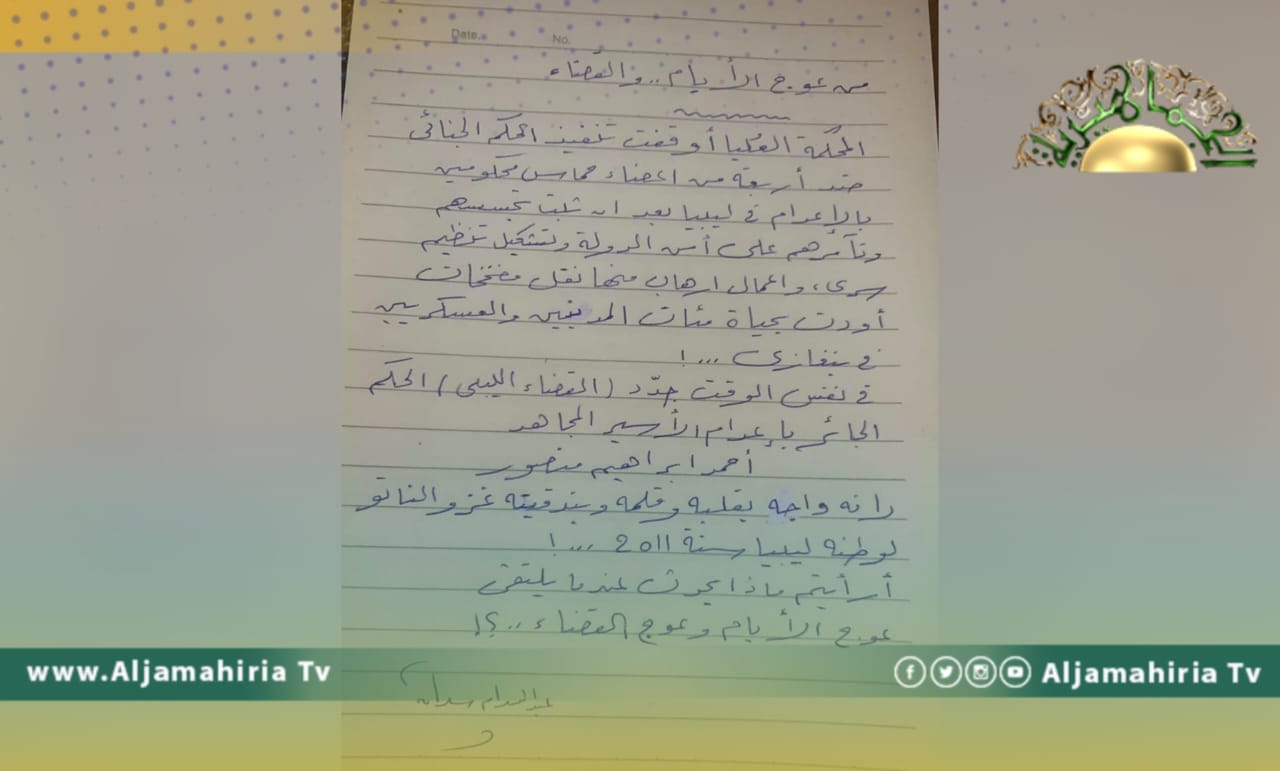 Date.
No.
من عوج الأيام.. والقضاء
المحكمة العُليا أوقفت تنفيذ الحكم الجنائي
ضد أربعة من اعضاء حماس محكومين
بالإعدام في ليبيا بعد ان ثبت تجسسهم
وتآمرهم على أمن الدولة وتشكيل تنظيم
سرى، واعمال ارهاب منها نقل مفخخات
أودت بحياة مئات المدنيين والعسكريين
في بنغازى ...!
في نفس الوقت جدّد (القضاء الليبى) الحكم
الجائر بإعدام الأسير المجاهد
أحمد ابراهيم منصور
لأنه واجه بقلبه وقلمه وبندقيته غزو الناتو
لوطنه ليبيا سنة 2011 ...!
أرأيتم ماذا يحدث عندما يلتقى
عوج الأيام وعوج القضاء ..؟!
www.Aljamahiria Tv
Aljamahiria Tv